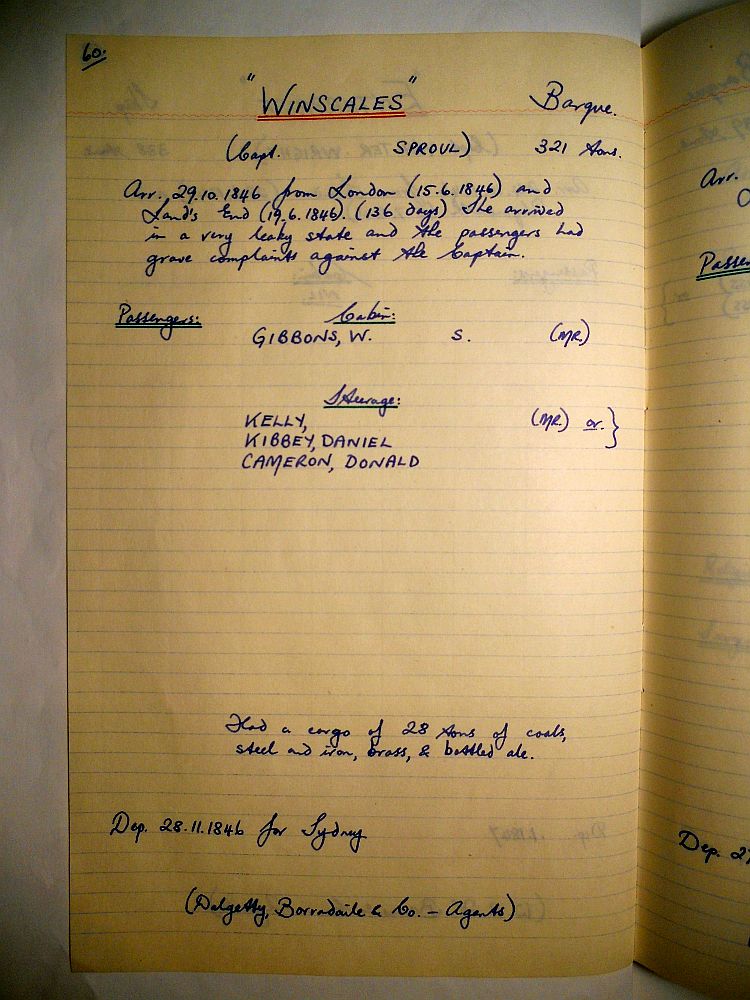 60.
"WINSCALES" Barque.
(Capt. SPROUL) 321 tons.
Arr. 29.10.1846 from London (15.6.1846) and
Land's End (19.6.1846). (136 days) She arrived
in a very leaky state and the passengers had
grave complaints against the Captain.
Passengers: Cabin:
GIBBONS, W. S. (MR.)
Steerage:
KELLY, (MR.) or. }
KIBBEY, DANIEL
CAMERON, DONALD
Had a cargo of 28 tons of coals,
steel and iron, brass, & bottled ale.
Dep. 28.11.1846 for Sydney
(Dalgetty, Borradaile & Co. - Agents)
Arr.
Dep. 27